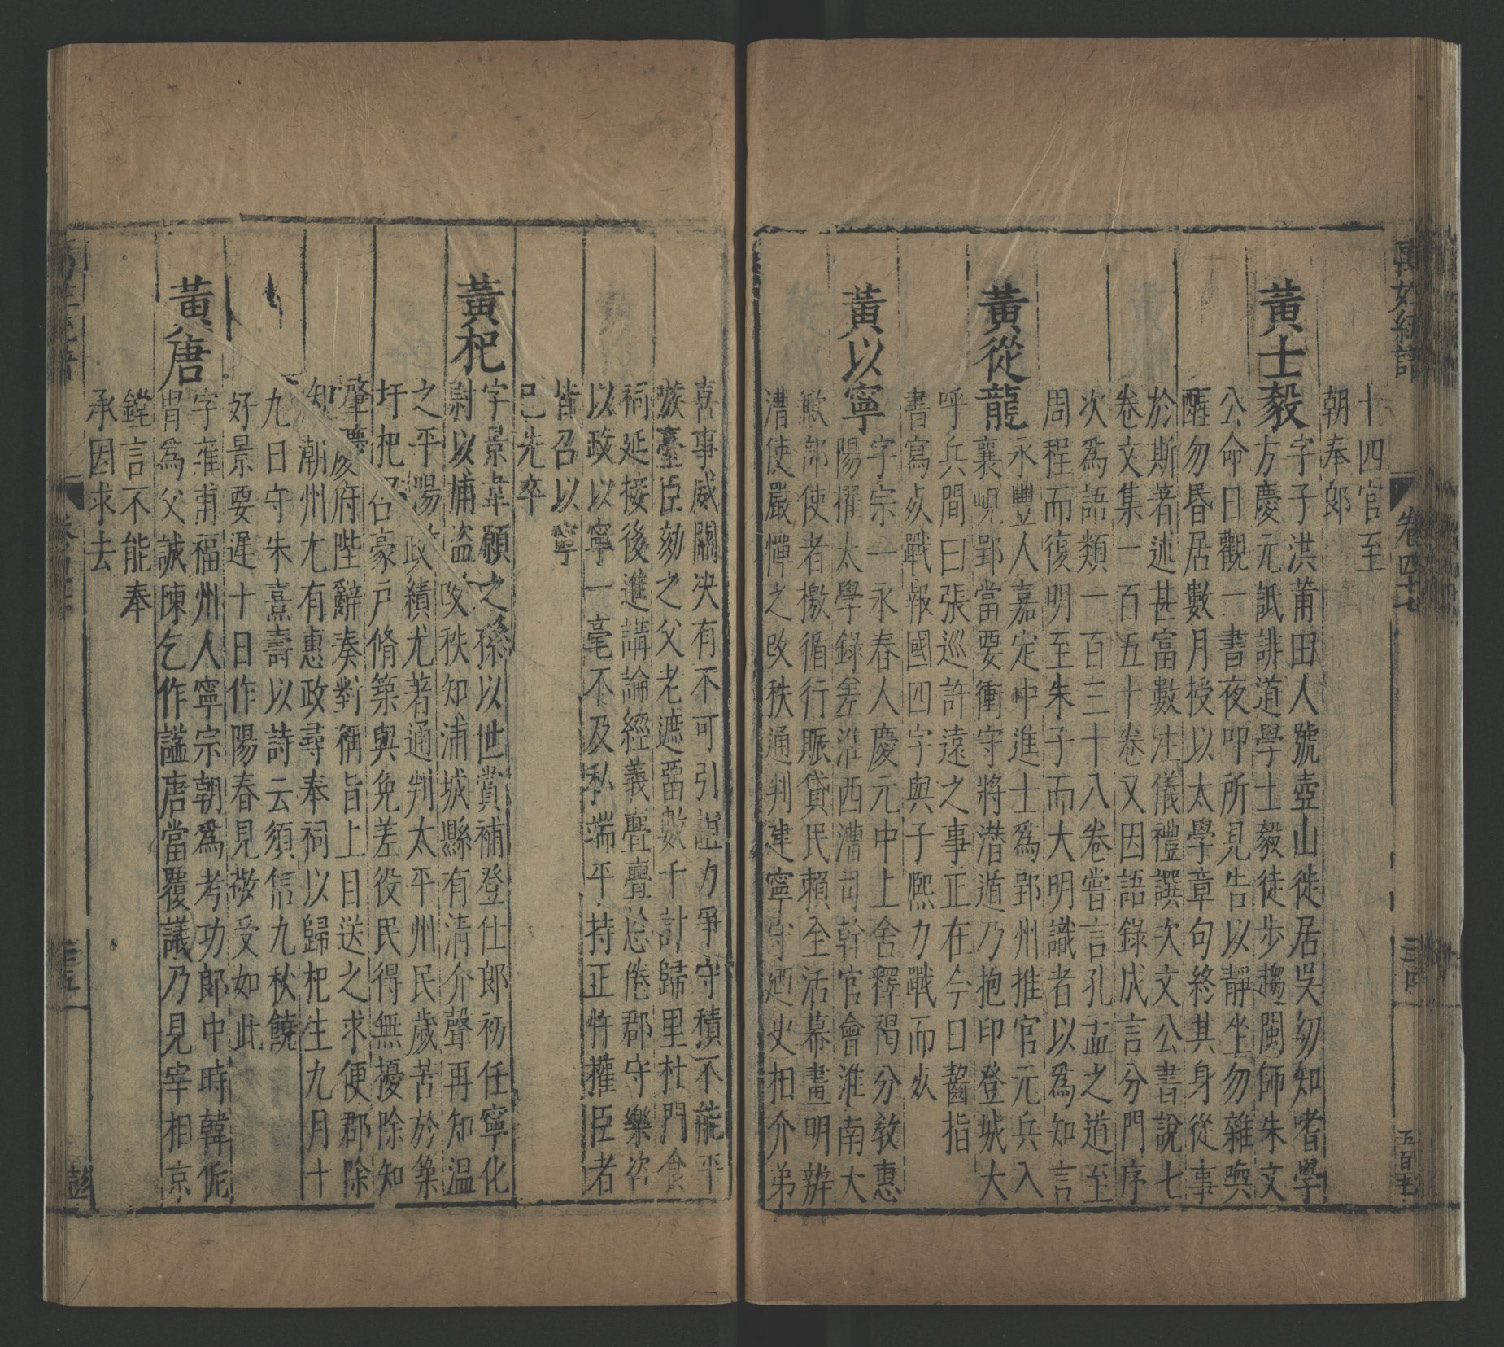 萬姓統譜
卷四十七
三十四
十四官至
朝奉郞
黃士毅
字子洪莆田人號壺山徙居吳幼知嗜學
方慶元詆誹道學士毅徒步趨閩師朱文
公命日觀一書夜叩所見告以靜坐勿雜喚
醒勿昏居數月授以太學章句終其身從事
於斯著述甚富數注儀禮譔次文公書說七
卷文集一百五十卷又因語錄成言分門序
次爲語類一百三十八卷嘗言孔孟之道至
周程而復明至朱子而大明識者以爲知言
黃從龍
永豐人嘉定中進士爲郢州推官元兵入
襄峴郢當要衝守將潜遁乃抱印登城大
呼兵間曰張巡許遠之事正在今日齧指
書寫以戰報國四字與子熈力戰而
黃以寧
字宗一永春人慶元中上舍釋褐分敎惠
陽擢太學錄差淮西漕司幹官會淮南大
歉部使者檄循行賑貸民賴全活幕畫明辨
漕使嚴憚之改秩通判建寧守廼史相介弟
喜事威關决有不可引證力爭守積不能平
族臺臣劾之父老遮畱數千計歸里杜門食
祠延接後進講論經義亹亹忘倦郡守樂咨
以政以寧一毫不及私端平持正忤權臣者
皆召以寧
已先卒
黃杞
字景韋願之孫以世賞補登仕郞初任寧化
尉以捕盜改秩知浦城縣有清介聲再知溫
之平陽政績尤著通判太平州民歲苦於築
圩把召豪戶脩築與免差役民得無擾除知
肇慶府陛辭奏對稱旨上目送之求便郡除
知潮州尤有惠政尋奉祠以歸杞生九月十
九日守朱熹壽以詩云須信九秋饒
好景要遲十日作陽春見敬受如此
黃唐
字雍甫福州人寧宗朝爲考功郞中時韓侂
冑爲父誠陳乞作謚唐當覆議乃見宰相京
鏜言不能奉
承因求去